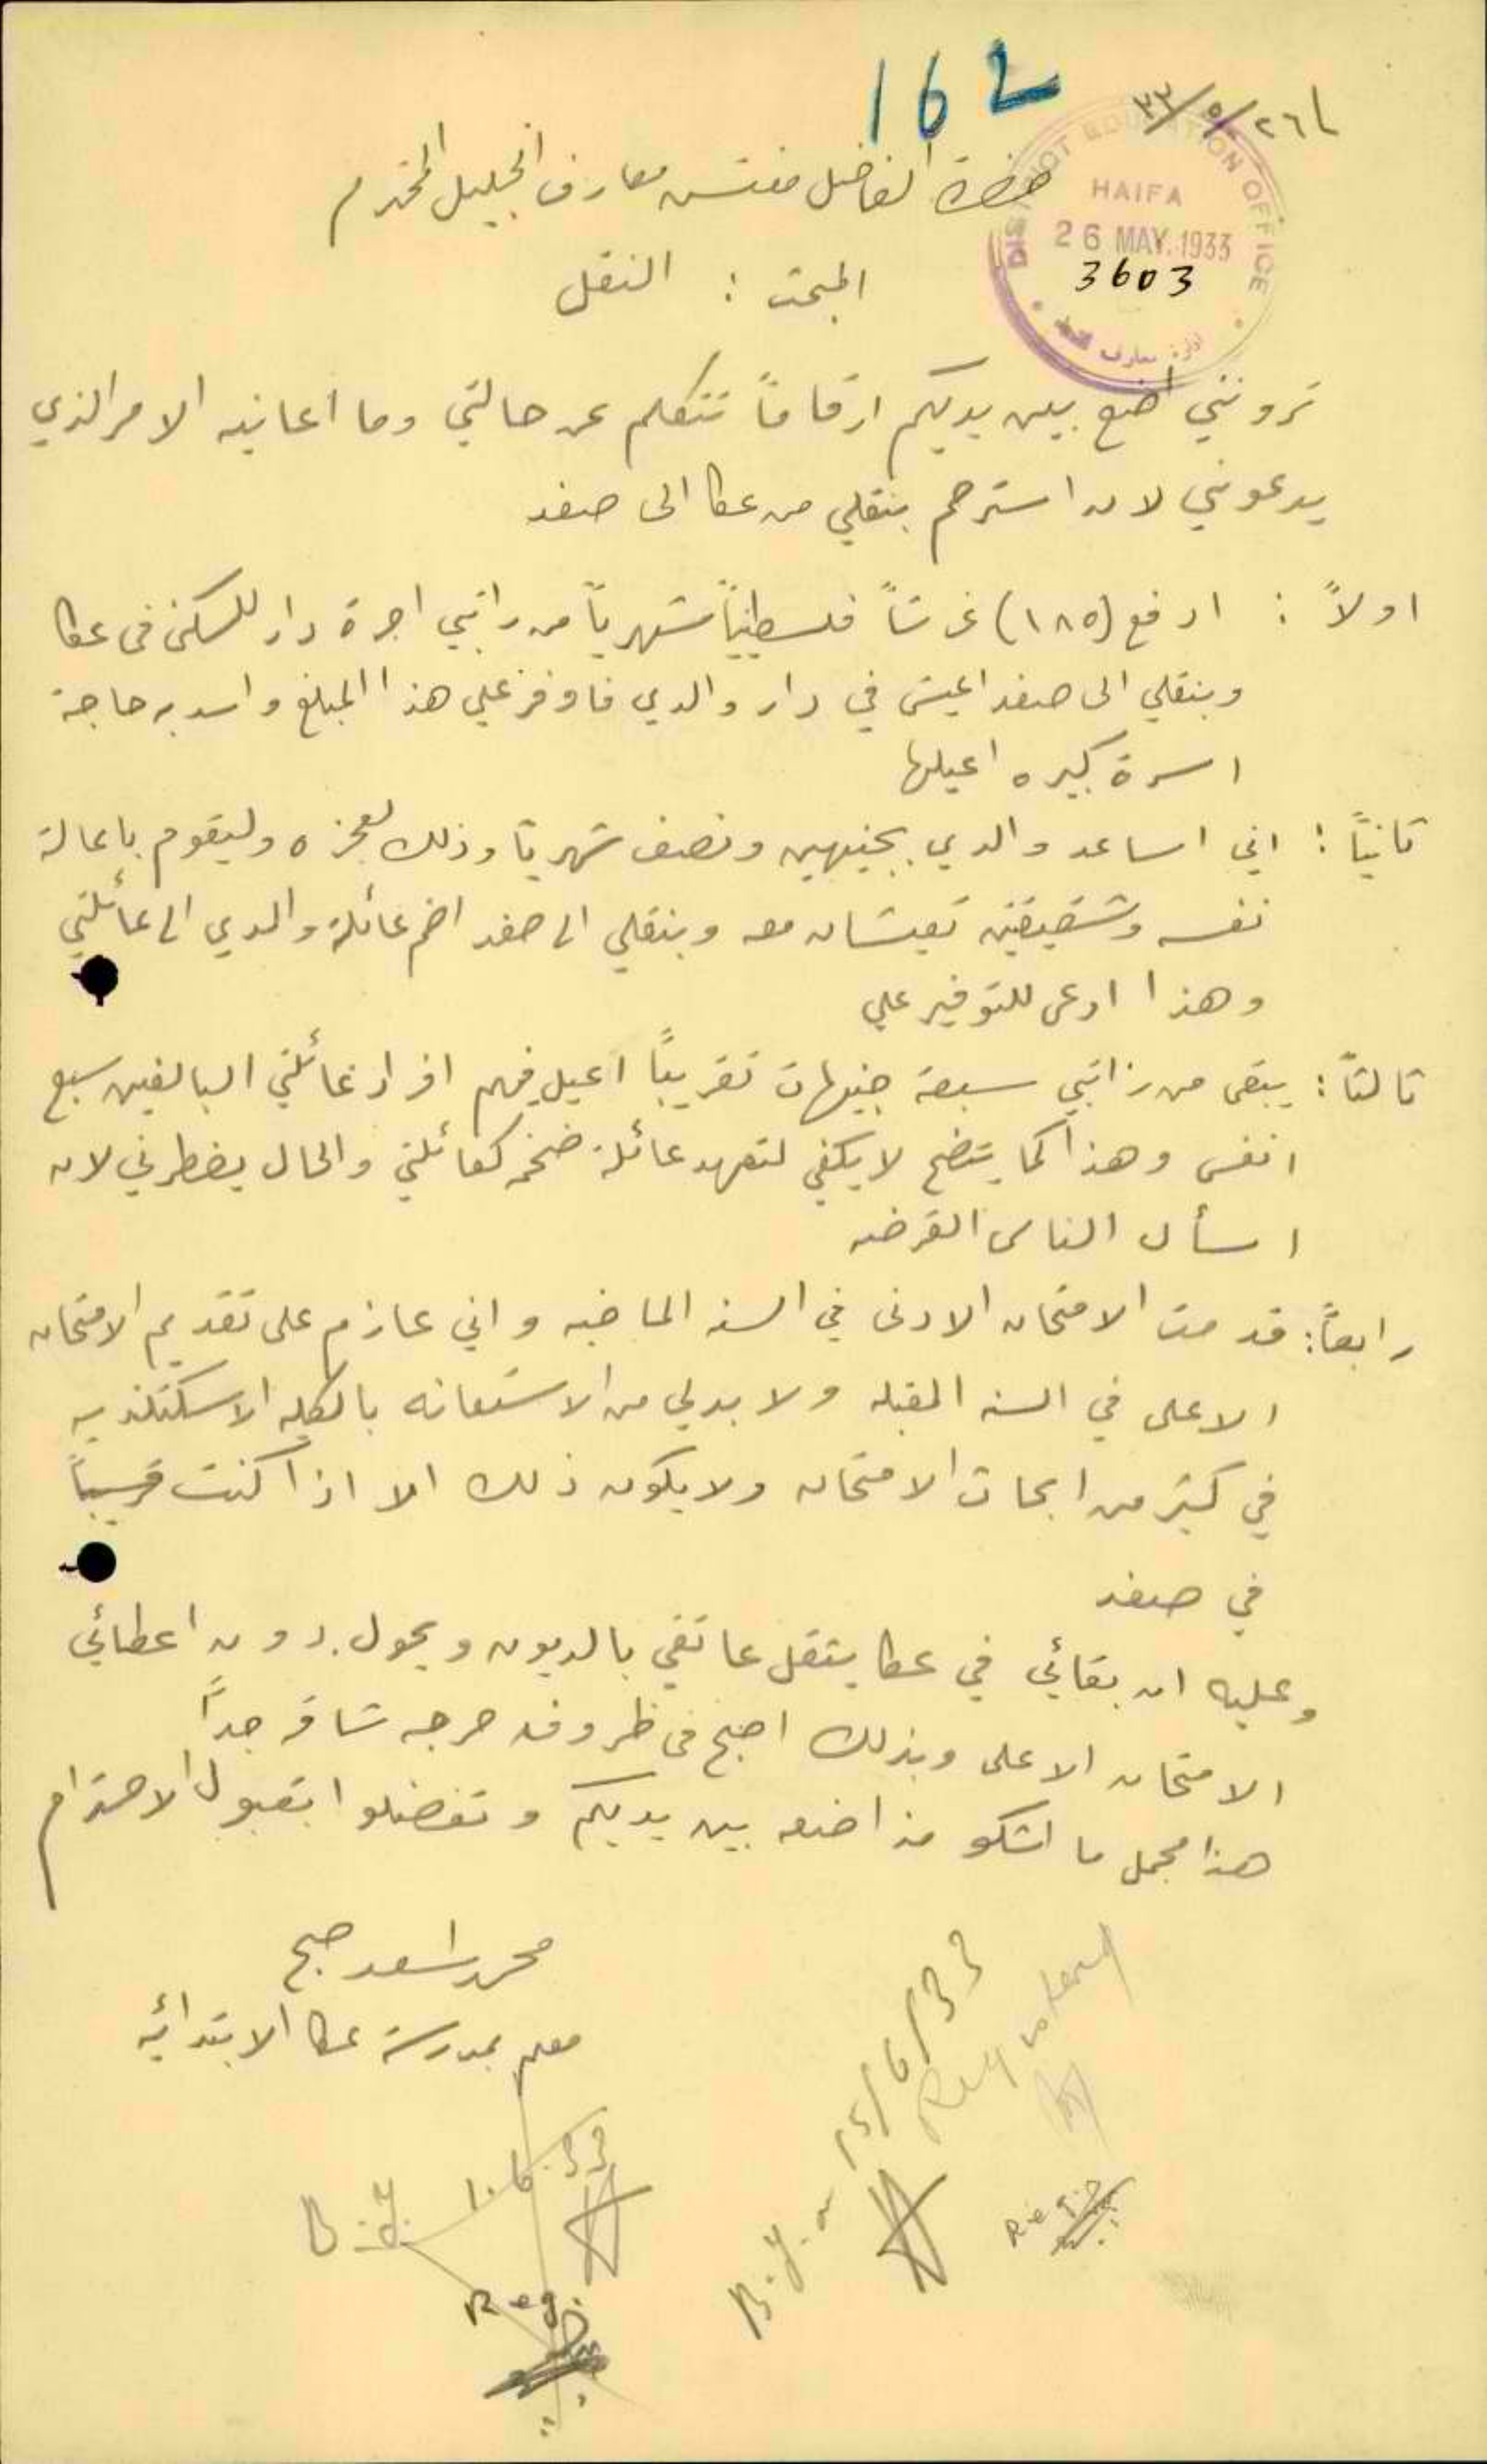 162
٢٦/٥/٣٣
DISTRICT EDUCATION OFFICE
HAIFA
26 MAY. 1933
3603
حضرة الفاضل مفتش معارف الجليل المحترم
المبحث : النقل
ترونني اضع بين يديكم ارقاماً تتكلم عن حالتي وما اعانيه الامر الذي
يدعوني لان استرحم بنقلي من عكا الى صفد
اولاً : ادفع (١٨٥) غرشاً فلسطينياً شهرياً من راتبي اجرة دار للسكنى في عكا
وبنقلي الى صفد اعيش في دار والدي فاوفر علي هذا المبلغ واسد به حاجة
اسرة كبيره اعيلها
ثانياً : اني اساعد والدي بجنيهين ونصف شهرياً وذلك لعجزه وليقوم باعالة
نفسه وشقيقتين تعيشان معه وبنقلي الى صفد اضم عائلة والدي الى عائلتي
وهذا ادعى للتوفير علي
ثالثاً : يبقى من راتبي سبعة جنيهات تقريباً اعيل فيهم افراد عائلتي البالغين سبع
انفس وهذا كما يتضح لا يكفي لتعهد عائلة ضخمه كعائلتي والحال يضطرني لان
اسأل الناس القرضه
رابعاً : قدمت الامتحان الادنى في السنه الماضيه واني عازم على تقديم الامتحان
الاعلى في السنه المقبله ولا بد لي من الاستعانه بالكليه الاسكتلنديه
في كثير من ابحاث الامتحان ولا يكون ذلك الا اذا كنت قريباً
في صفد
وعليه ان بقائي في عكا يثقل عاتقي بالديون ويحول دون اعطائي
الامتحان الاعلى وبذلك اصبح في ظروف حرجه شاقه جداً
هذا مجمل ما اشكو منه اضعه بين يديكم وتفضلوا بقبول الاحترام
محمد اسعد صبح
معلم بمدرسة عكا الابتدائيه
B.U. 1.6.33
Reg.
B.U. on 15/6/33
Reg.